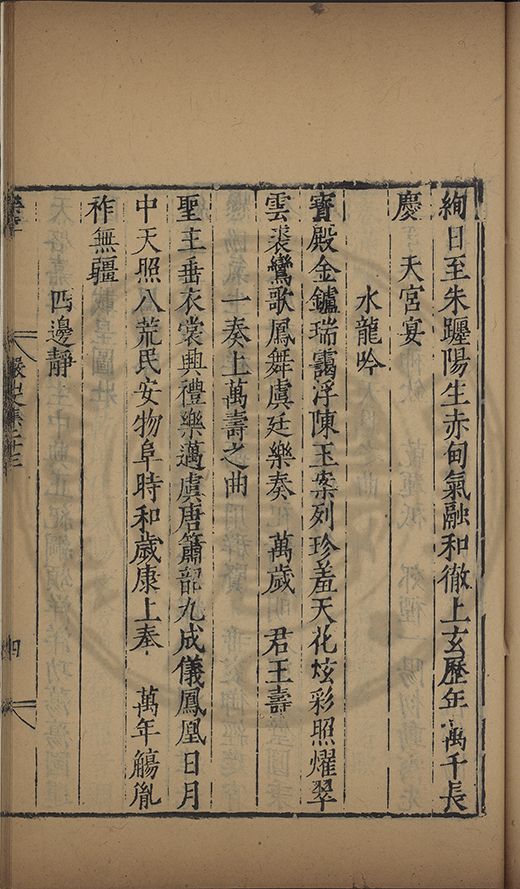 絢日至朱躔陽生赤甸氣融和徹上玄歷年萬千長
慶　天宮宴
水龍吟
寶殿金鑪瑞靄浮陳玉案列珍羞天花炫彩照燿翠
雲裘鸞歌鳳舞虞廷樂奏　萬歲　君王壽
一奏上萬壽之曲
聖主垂衣裳興禮樂邁虞唐簫韶九成儀鳳凰日月
中天照八荒民安物阜時和歲康上奉　萬年觴胤
祚無疆
四邊靜
四